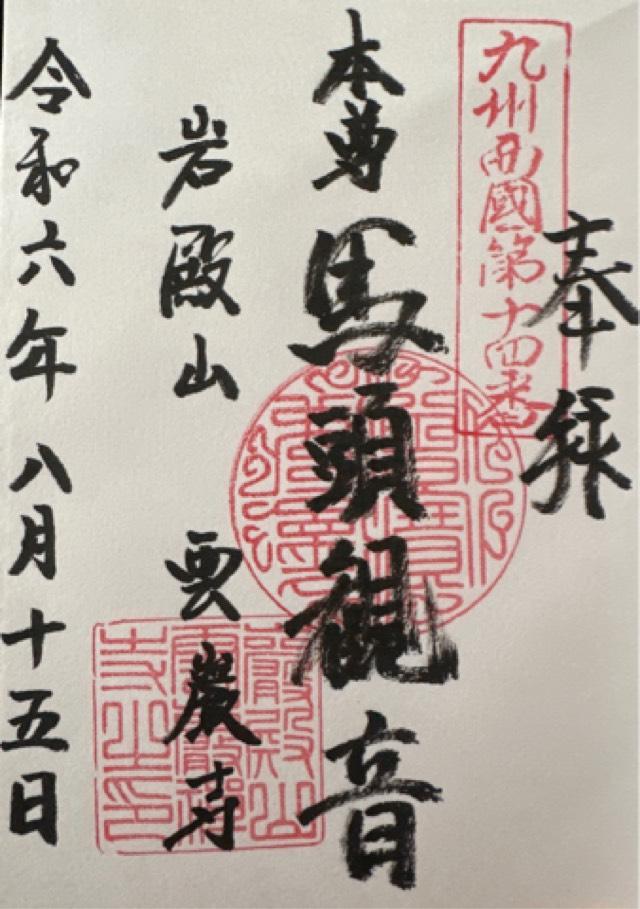 奉拝
九州西國第十四番
本尊 馬頭観音
岩殿山 雲巌寺
令和六年八月十五日